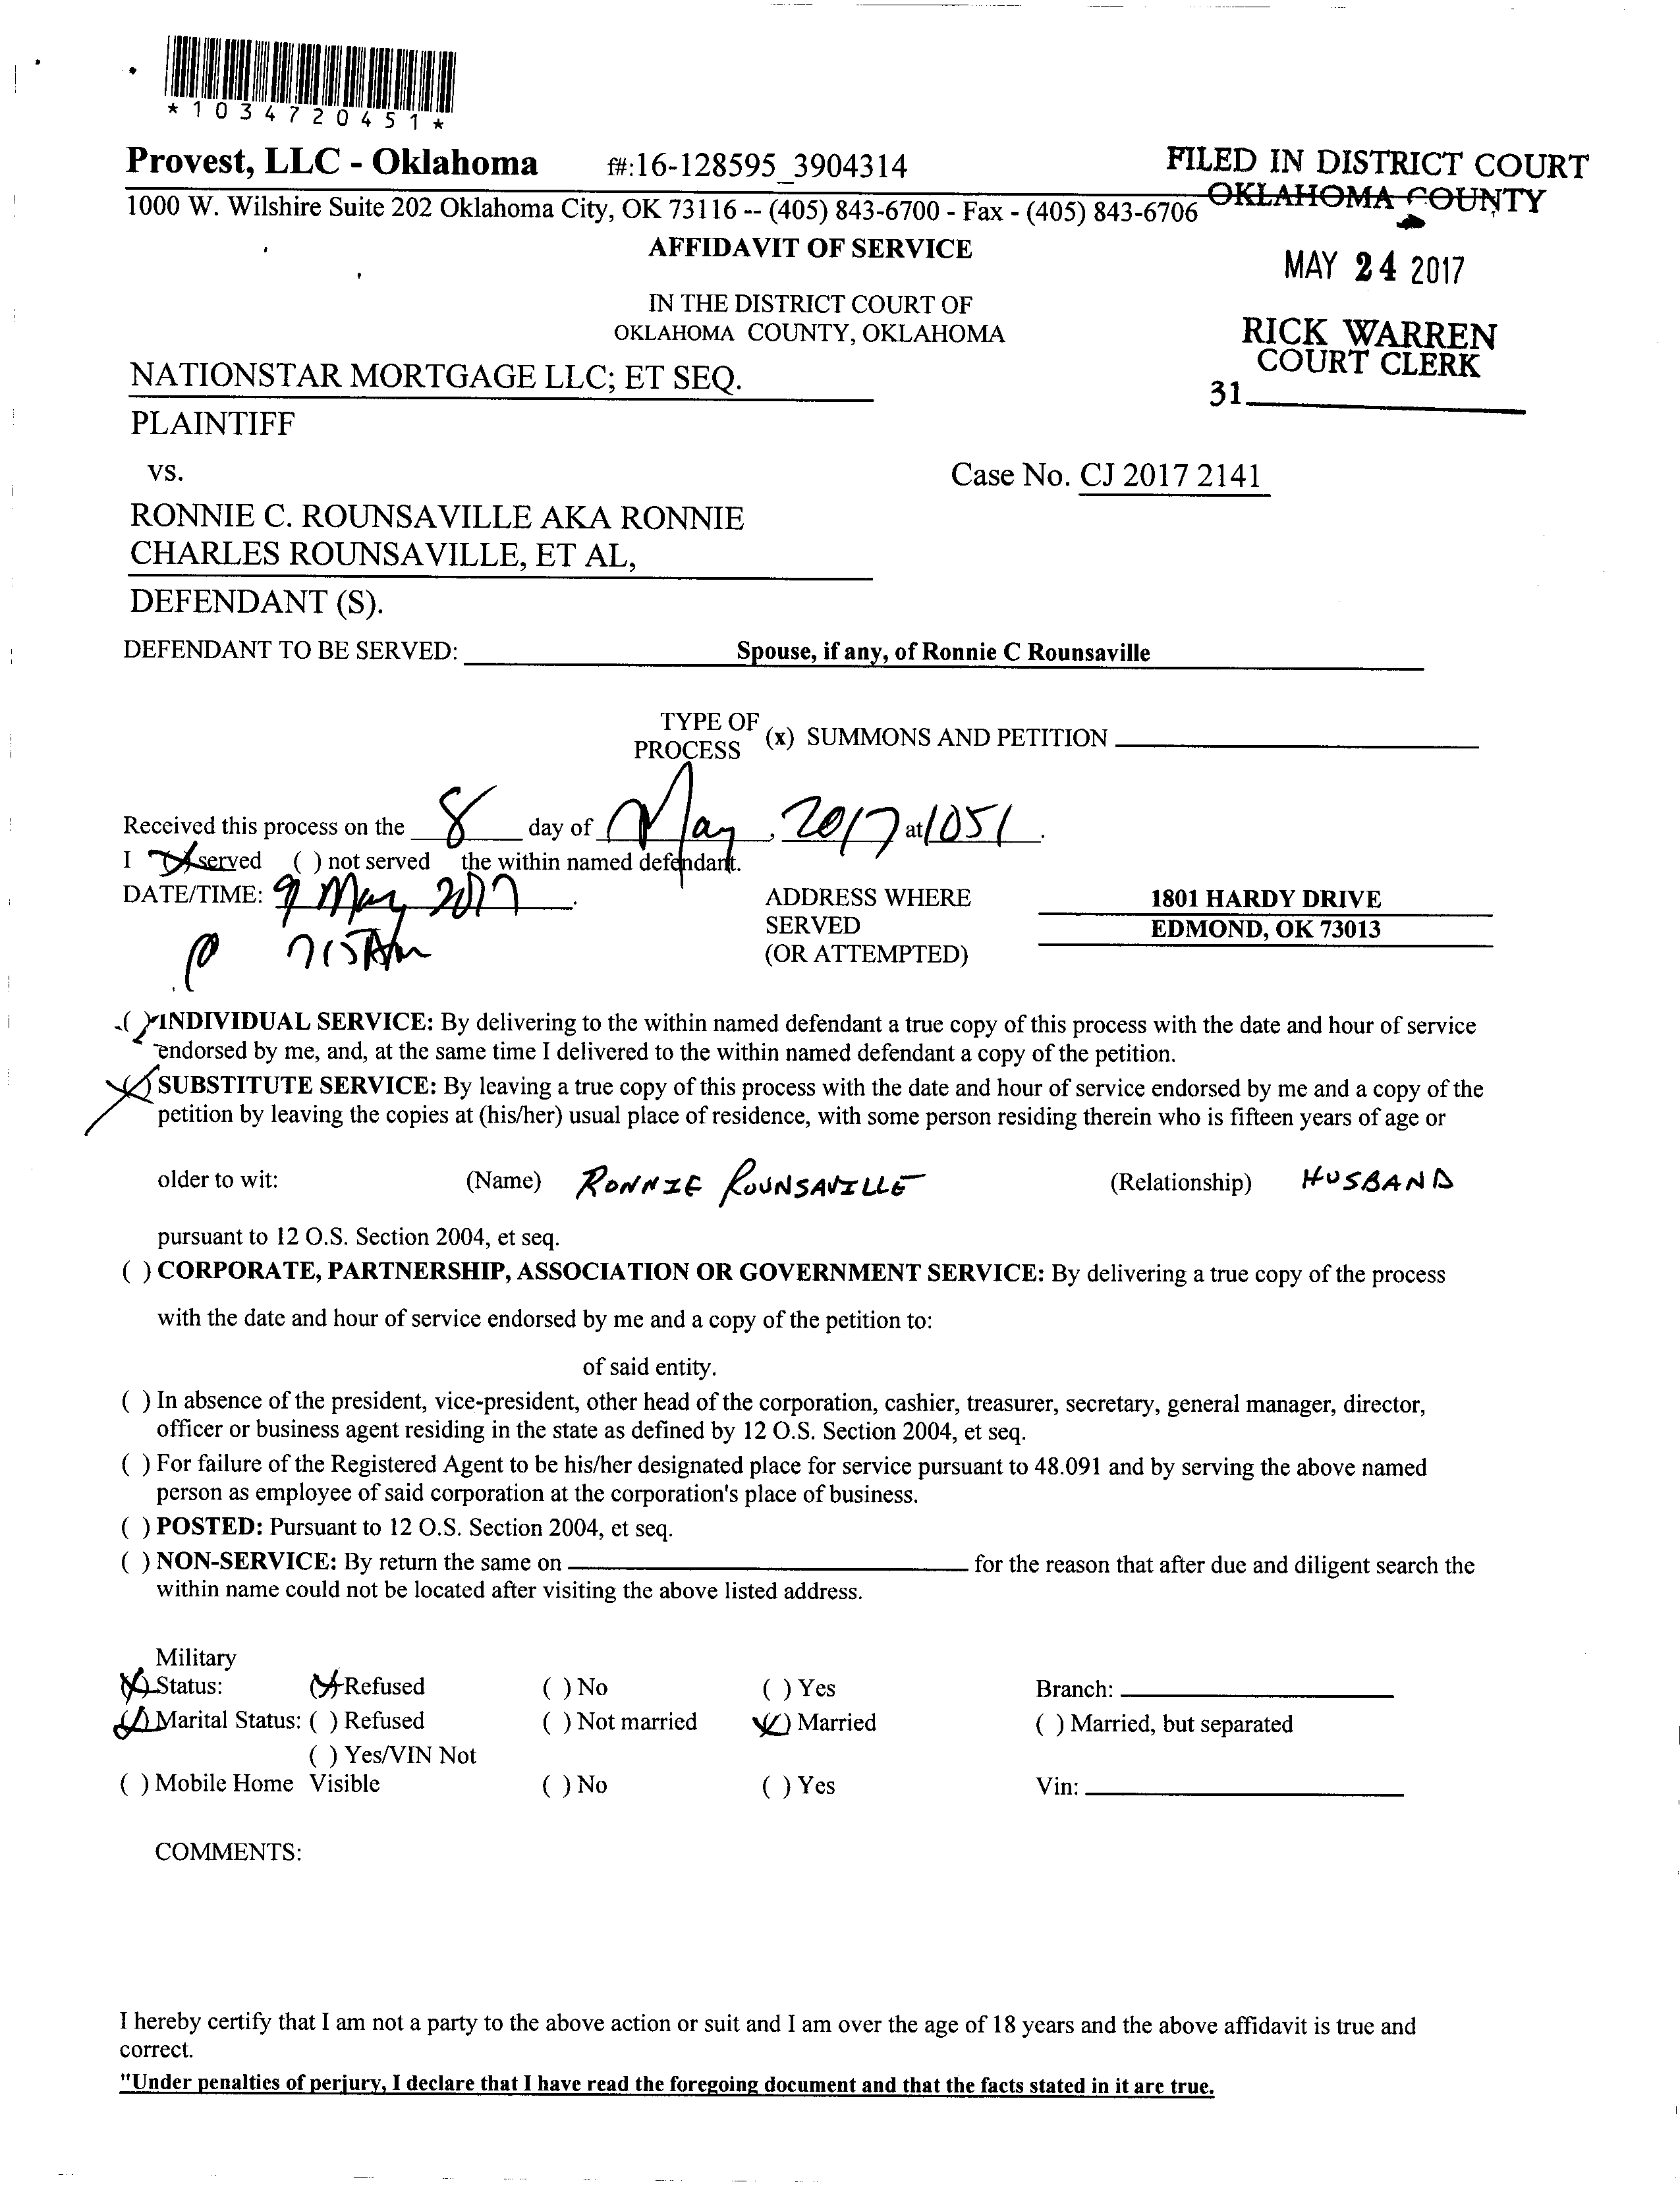 *1034720451*
Provest, LLC - Oklahoma f#:16-128595_3904314
FILED IN DISTRICT COURT
OKLAHOMA COUNTY
1000 W. Wilshire Suite 202 Oklahoma City, OK 73116 -- (405) 843-6700 - Fax - (405) 843-6706
AFFIDAVIT OF SERVICE
MAY 24 2017
IN THE DISTRICT COURT OF
OKLAHOMA COUNTY, OKLAHOMA
RICK WARREN
COURT CLERK
31
NATIONSTAR MORTGAGE LLC; ET SEQ.
PLAINTIFF
vs.
Case No. CJ 2017 2141
RONNIE C. ROUNSAVILLE AKA RONNIE
CHARLES ROUNSAVILLE, ET AL,
DEFENDANT (S).
DEFENDANT TO BE SERVED: Spouse, if any, of Ronnie C Rounsaville
TYPE OF
PROCESS (x) SUMMONS AND PETITION
Received this process on the 8 day of May, 2017 at 1051.
I (X) served ( ) not served the within named defendant.
DATE/TIME: 9 May 2017.
@ 715Am
ADDRESS WHERE
SERVED
(OR ATTEMPTED)
1801 HARDY DRIVE
EDMOND, OK 73013
( ) INDIVIDUAL SERVICE: By delivering to the within named defendant a true copy of this process with the date and hour of service
endorsed by me, and, at the same time I delivered to the within named defendant a copy of the petition.
(X) SUBSTITUTE SERVICE: By leaving a true copy of this process with the date and hour of service endorsed by me and a copy of the
petition by leaving the copies at (his/her) usual place of residence, with some person residing therein who is fifteen years of age or
older to wit: (Name) RONNIE ROUNSAVILLE (Relationship) HUSBAND
pursuant to 12 O.S. Section 2004, et seq.
( ) CORPORATE, PARTNERSHIP, ASSOCIATION OR GOVERNMENT SERVICE: By delivering a true copy of the process
with the date and hour of service endorsed by me and a copy of the petition to:
of said entity.
( ) In absence of the president, vice-president, other head of the corporation, cashier, treasurer, secretary, general manager, director,
officer or business agent residing in the state as defined by 12 O.S. Section 2004, et seq.
( ) For failure of the Registered Agent to be his/her designated place for service pursuant to 48.091 and by serving the above named
person as employee of said corporation at the corporation's place of business.
( ) POSTED: Pursuant to 12 O.S. Section 2004, et seq.
( ) NON-SERVICE: By return the same on for the reason that after due and diligent search the
within name could not be located after visiting the above listed address.
Military
(X) Status: (X) Refused ( ) No ( ) Yes Branch:
(X) Marital Status: ( ) Refused ( ) Not married (X) Married ( ) Married, but separated
( ) Yes/VIN Not
( ) Mobile Home Visible ( ) No ( ) Yes Vin:
COMMENTS:
I hereby certify that I am not a party to the above action or suit and I am over the age of 18 years and the above affidavit is true and
correct.
"Under penalties of perjury, I declare that I have read the foregoing document and that the facts stated in it are true.